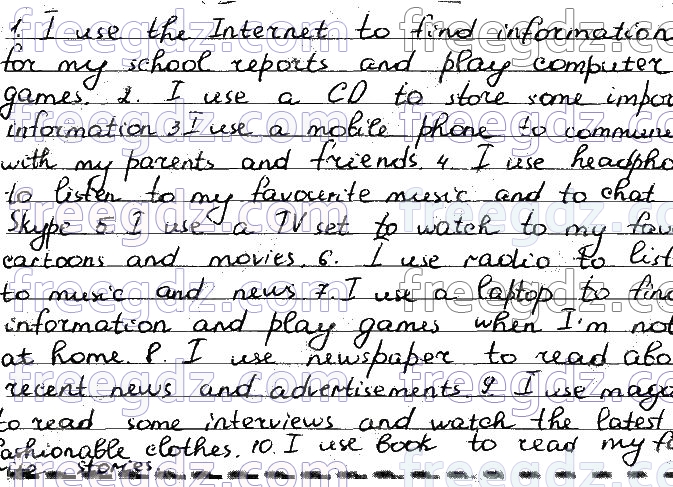 1. I use the Internet to find information
for my school reports and play computer
games. 2. I use a CD to store some impor
information 3 I use a mobile phone to commune
with my parents and friends. 4. I use headpho
to listen to my favourite music and to chat
Skype 5 I use a TV set to watch to my fav
cartoons and movies. 6. I use radio to list
to music and news 7. I use a laptop to find
information and play games when I'm not
at home. 8. I use newspaper to read abo
recent news and advertisements. 9 I use maga
to read some interviews and watch the latest
fashionable clothes. 10. I use book to read my fa
stories.
freegdz.com